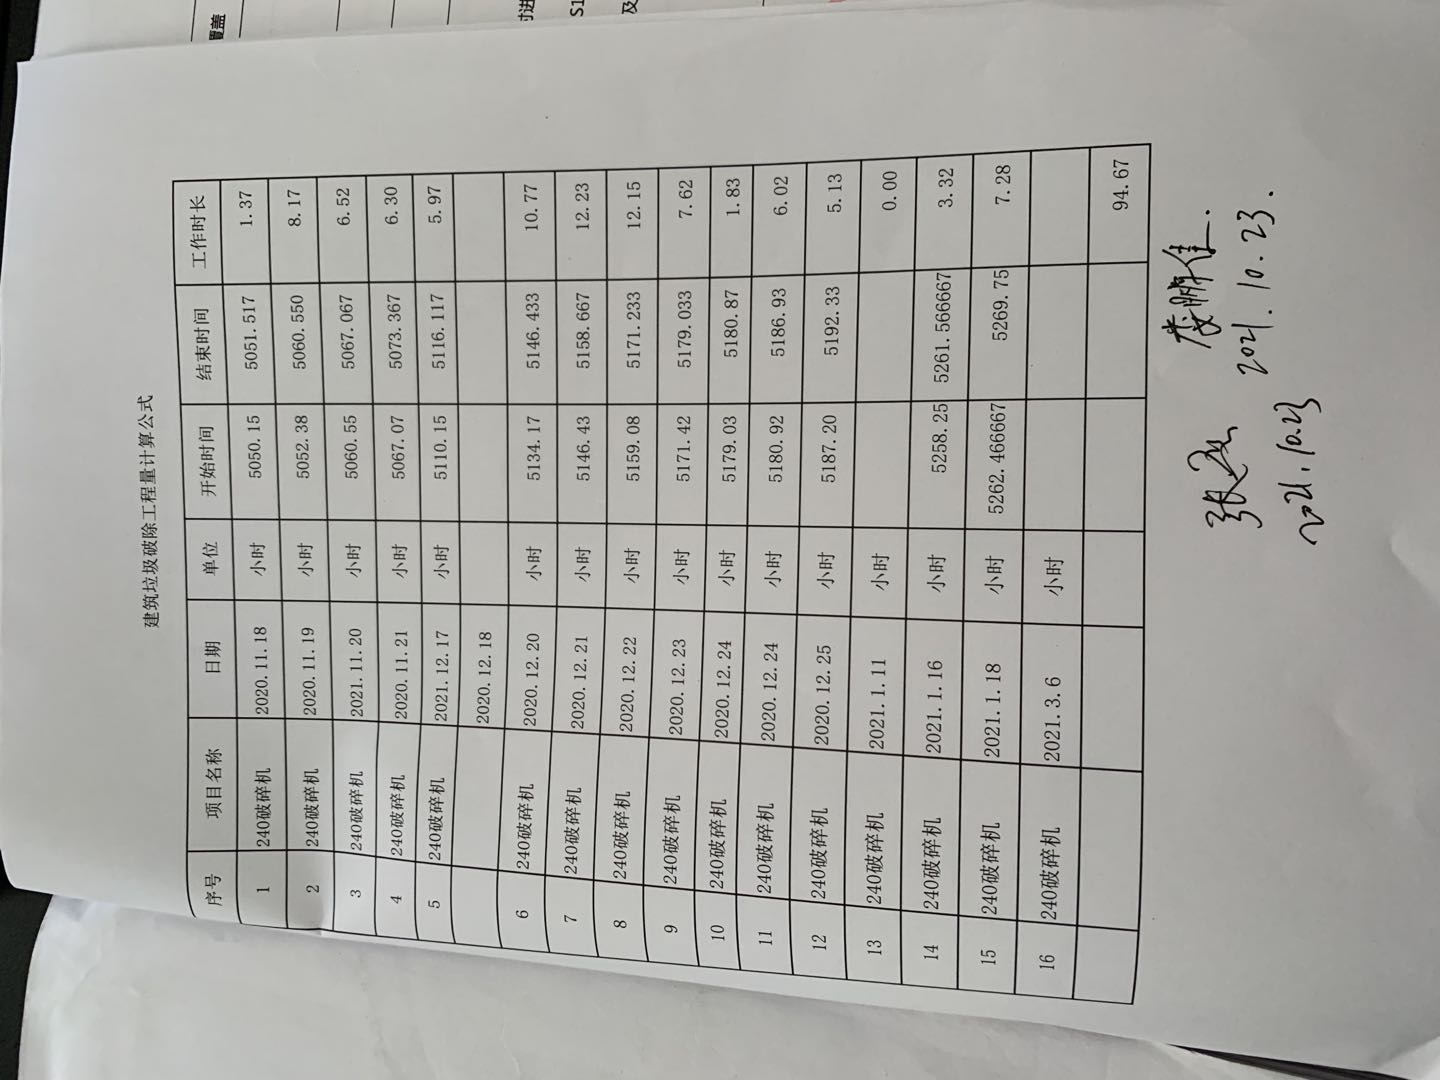 建筑垃圾破除工程量计算公式
序号 项目名称 日期 单位 开始时间 结束时间 工作时长
1 240破碎机 2020.11.18 小时 5050.15 5051.517 1.37
2 240破碎机 2020.11.19 小时 5052.38 5060.550 8.17
3 240破碎机 2021.11.20 小时 5060.55 5067.067 6.52
4 240破碎机 2020.11.21 小时 5067.07 5073.367 6.30
5 240破碎机 2021.12.17 小时 5110.15 5116.117 5.97
2020.12.18
6 240破碎机 2020.12.20 小时 5134.17 5146.433 10.77
7 240破碎机 2020.12.21 小时 5146.43 5158.667 12.23
8 240破碎机 2020.12.22 小时 5159.08 5171.233 12.15
9 240破碎机 2020.12.23 小时 5171.42 5179.033 7.62
10 240破碎机 2020.12.24 小时 5179.03 5180.87 1.83
11 240破碎机 2020.12.24 小时 5180.92 5186.93 6.02
12 240破碎机 2020.12.25 小时 5187.20 5192.33 5.13
13 240破碎机 2021.1.11 小时 0.00
14 240破碎机 2021.1.16 小时 5258.25 5261.566667 3.32
15 240破碎机 2021.1.18 小时 5262.466667 5269.75 7.28
16 240破碎机 2021.3.6 小时
94.67
2021.10.23.
2021.10.23
覆盖
S1
及